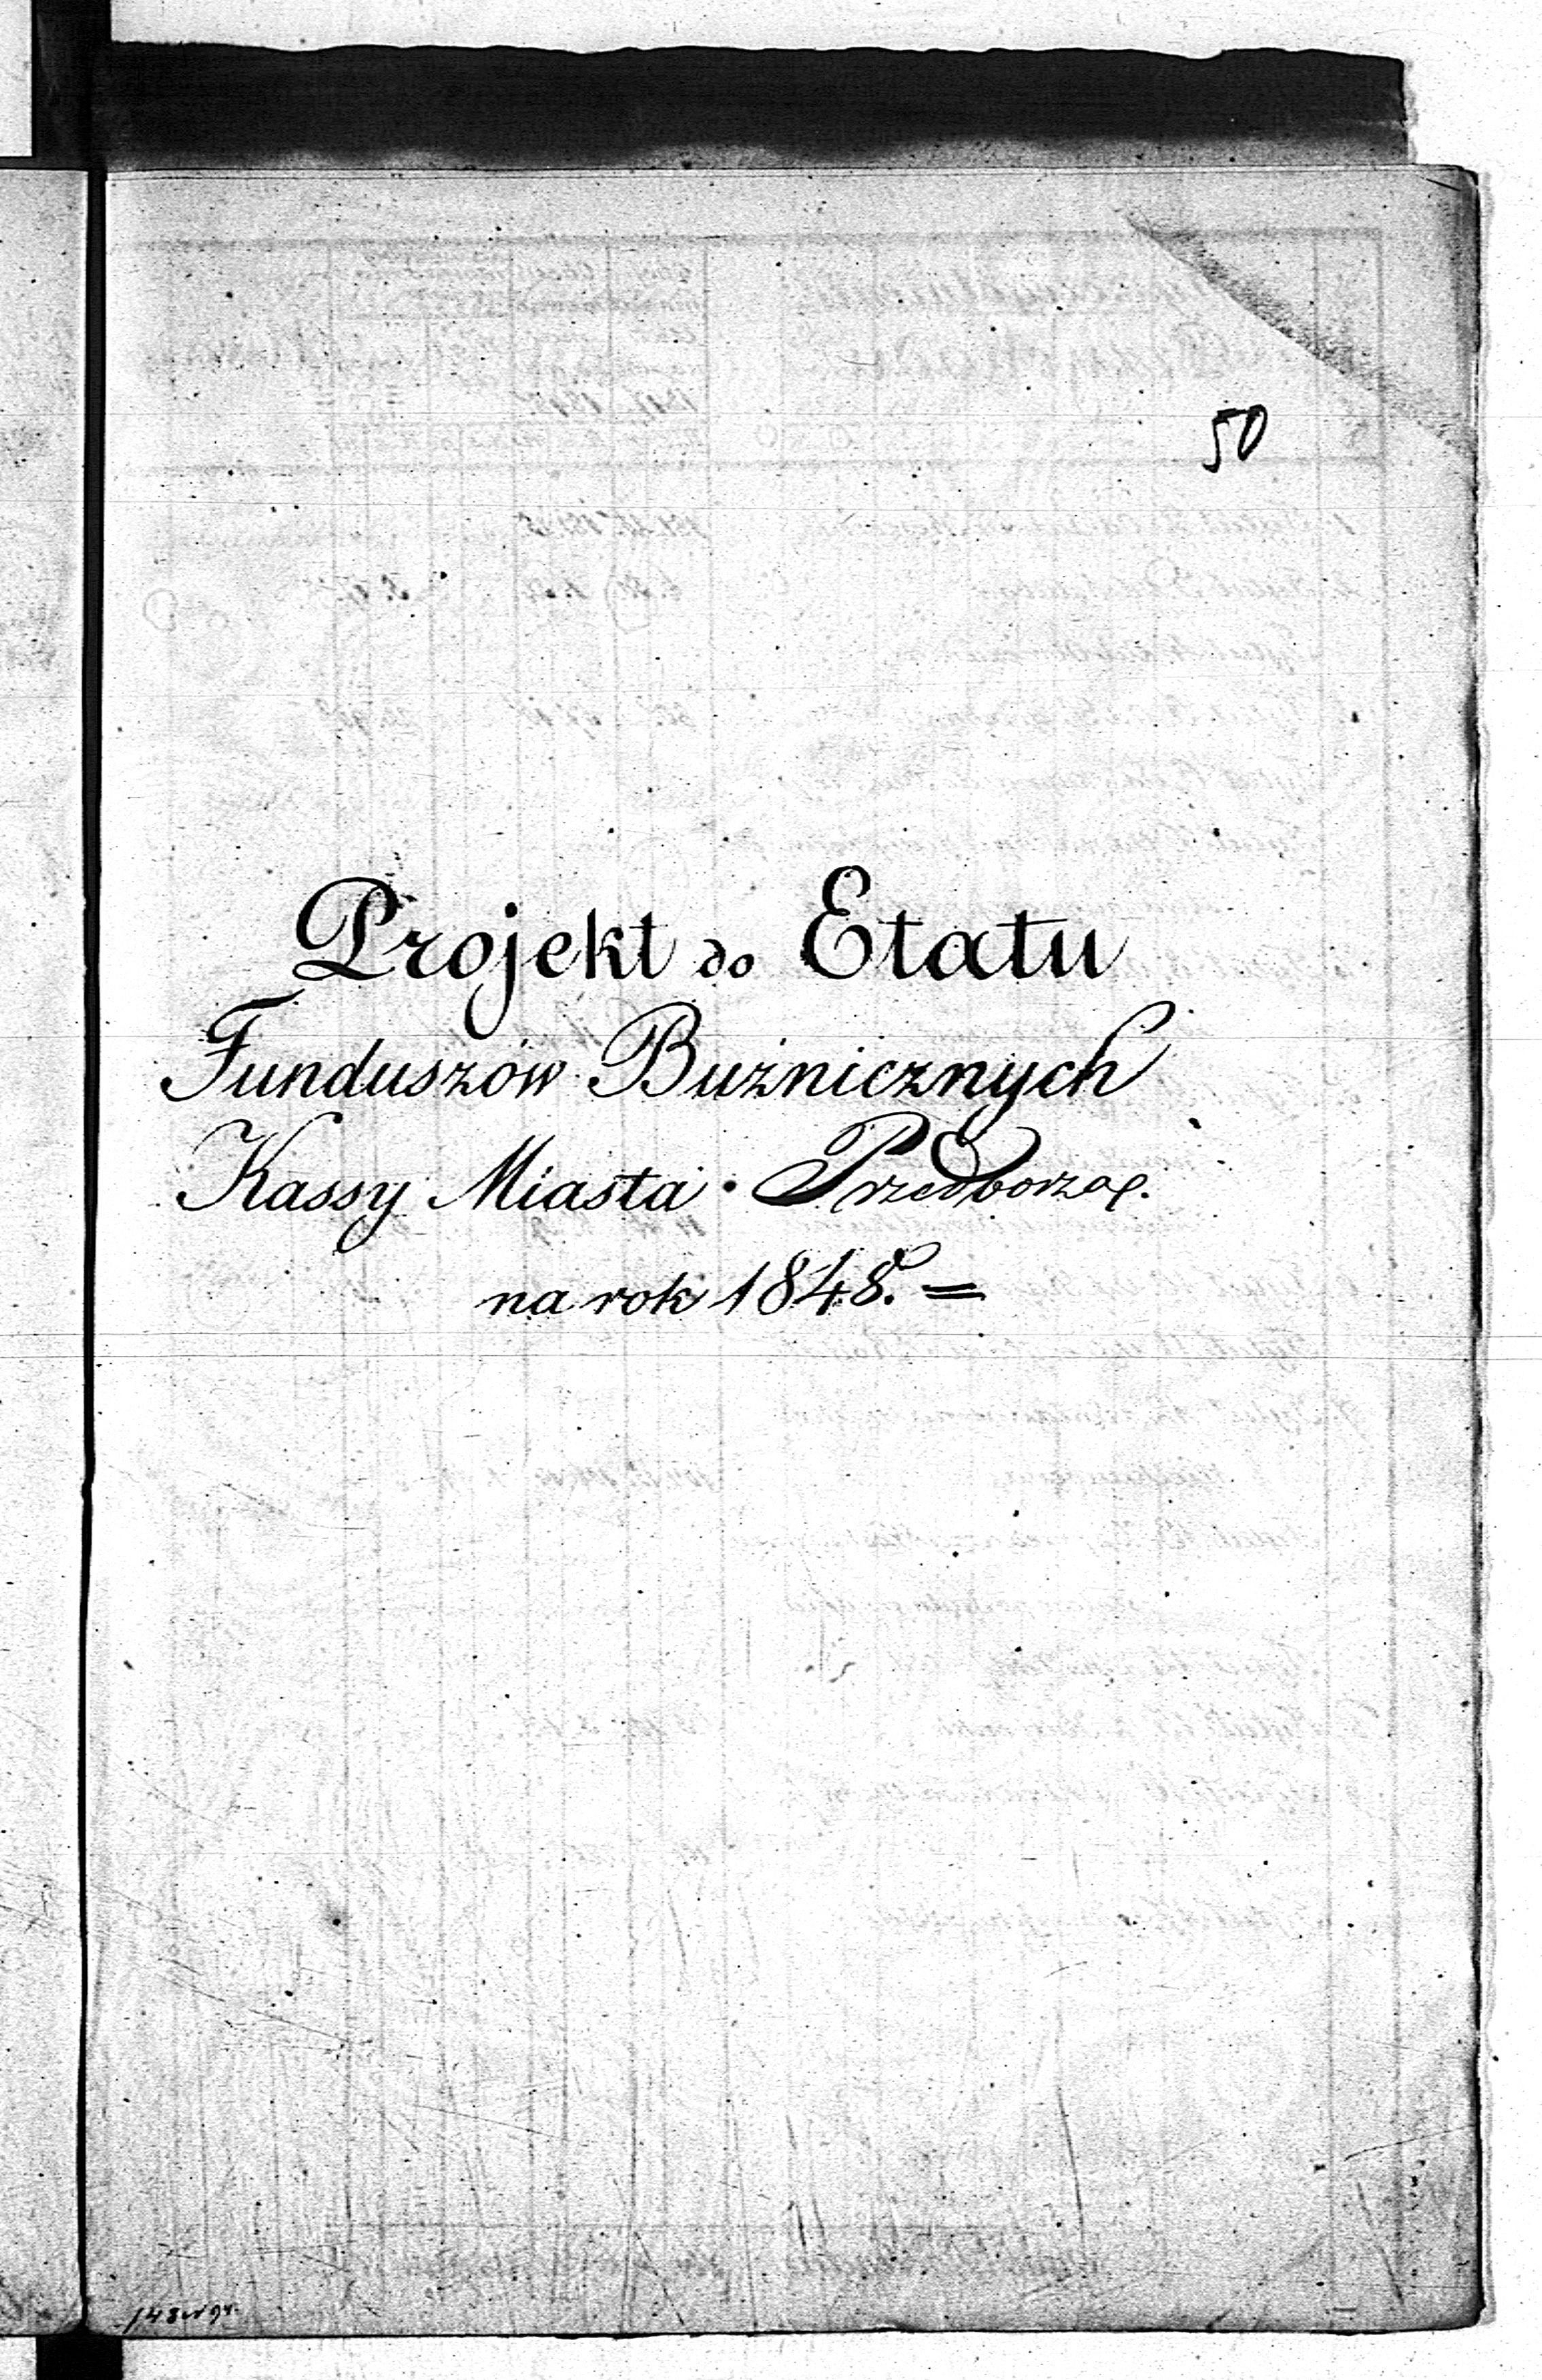 50
Projekt do Etatu
Funduszów Bużnicznych
Kassy Miasta Przedborza.
na rok 1848. =